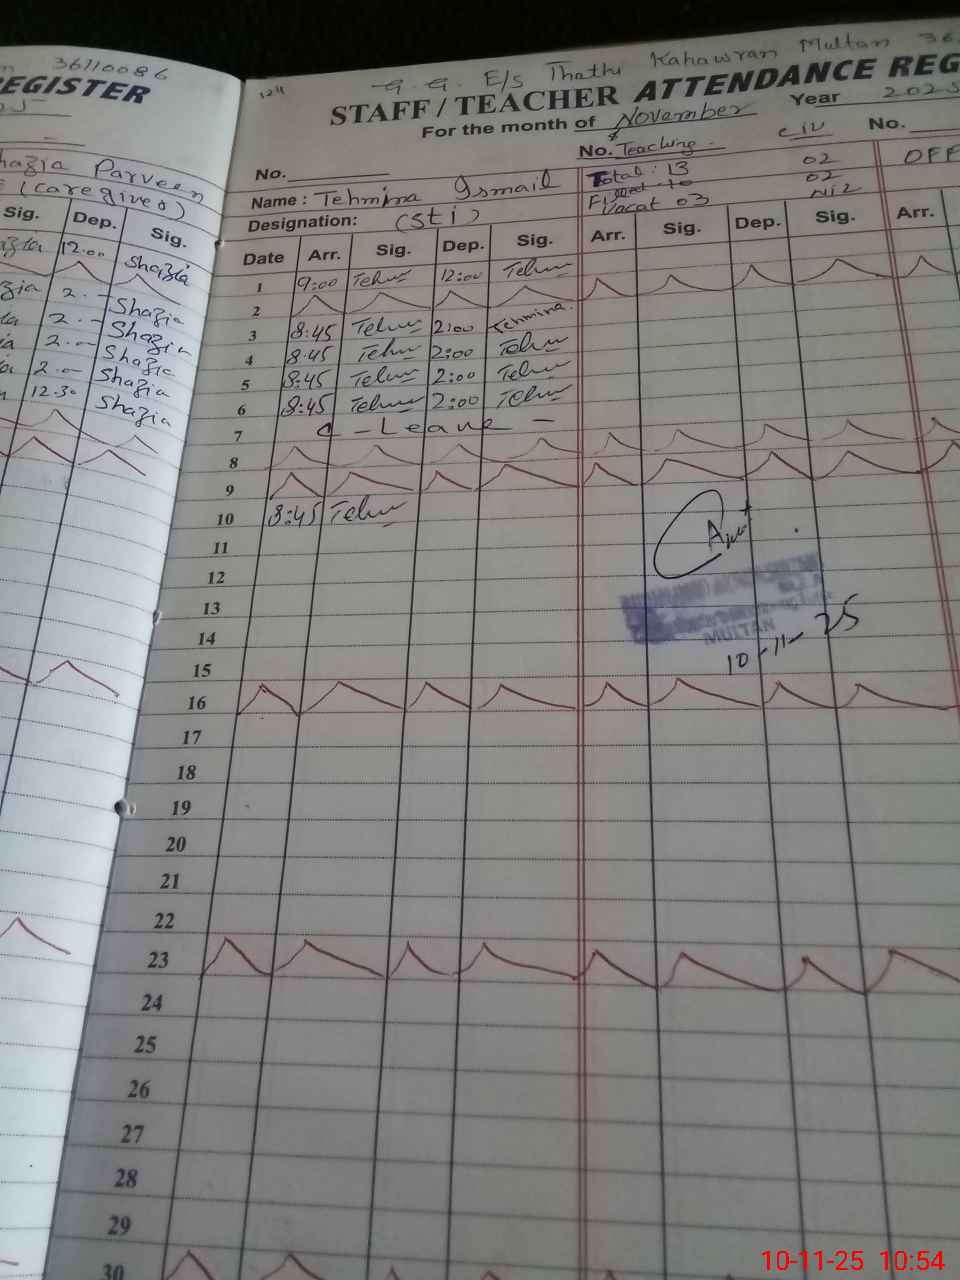 36110086
REGISTER
Shazia Parveen
(caregiver)
Sig. Dep. Sig.
12.00 Shazia
2.- Shazia
2.- Shazia
2.- Shazia
2.- Shazia
12.30 Shazia
G. G. E/s Thathi Kahawran Multan 36
STAFF / TEACHER ATTENDANCE REG
For the month of November Year 2025
No. No. Teaching. civ No.
Name : Tehmina Ismail Total : 13 02 OFF
Designation: (sti) Filled 10 02
Vacat 03 Nil
Date Arr. Sig. Dep. Sig. Arr. Sig. Dep. Sig. Arr.
1 9:00 Tehm 12:00 Tehm
2
3 8:45 Tehm 2:00 Tehmina.
4 8:45 Tehm 2:00 Tehm
5 8:45 Tehm 2:00 Tehm
6 8:45 Tehm 2:00 Tehm
7 C - Leave -
8
9
10 8:45 Tehm
11
12
13
14 MULTAN
10-11-25
15
16
17
18
19
20
21
22
23
24
25
26
27
28
29
30
10-11-25 10:54